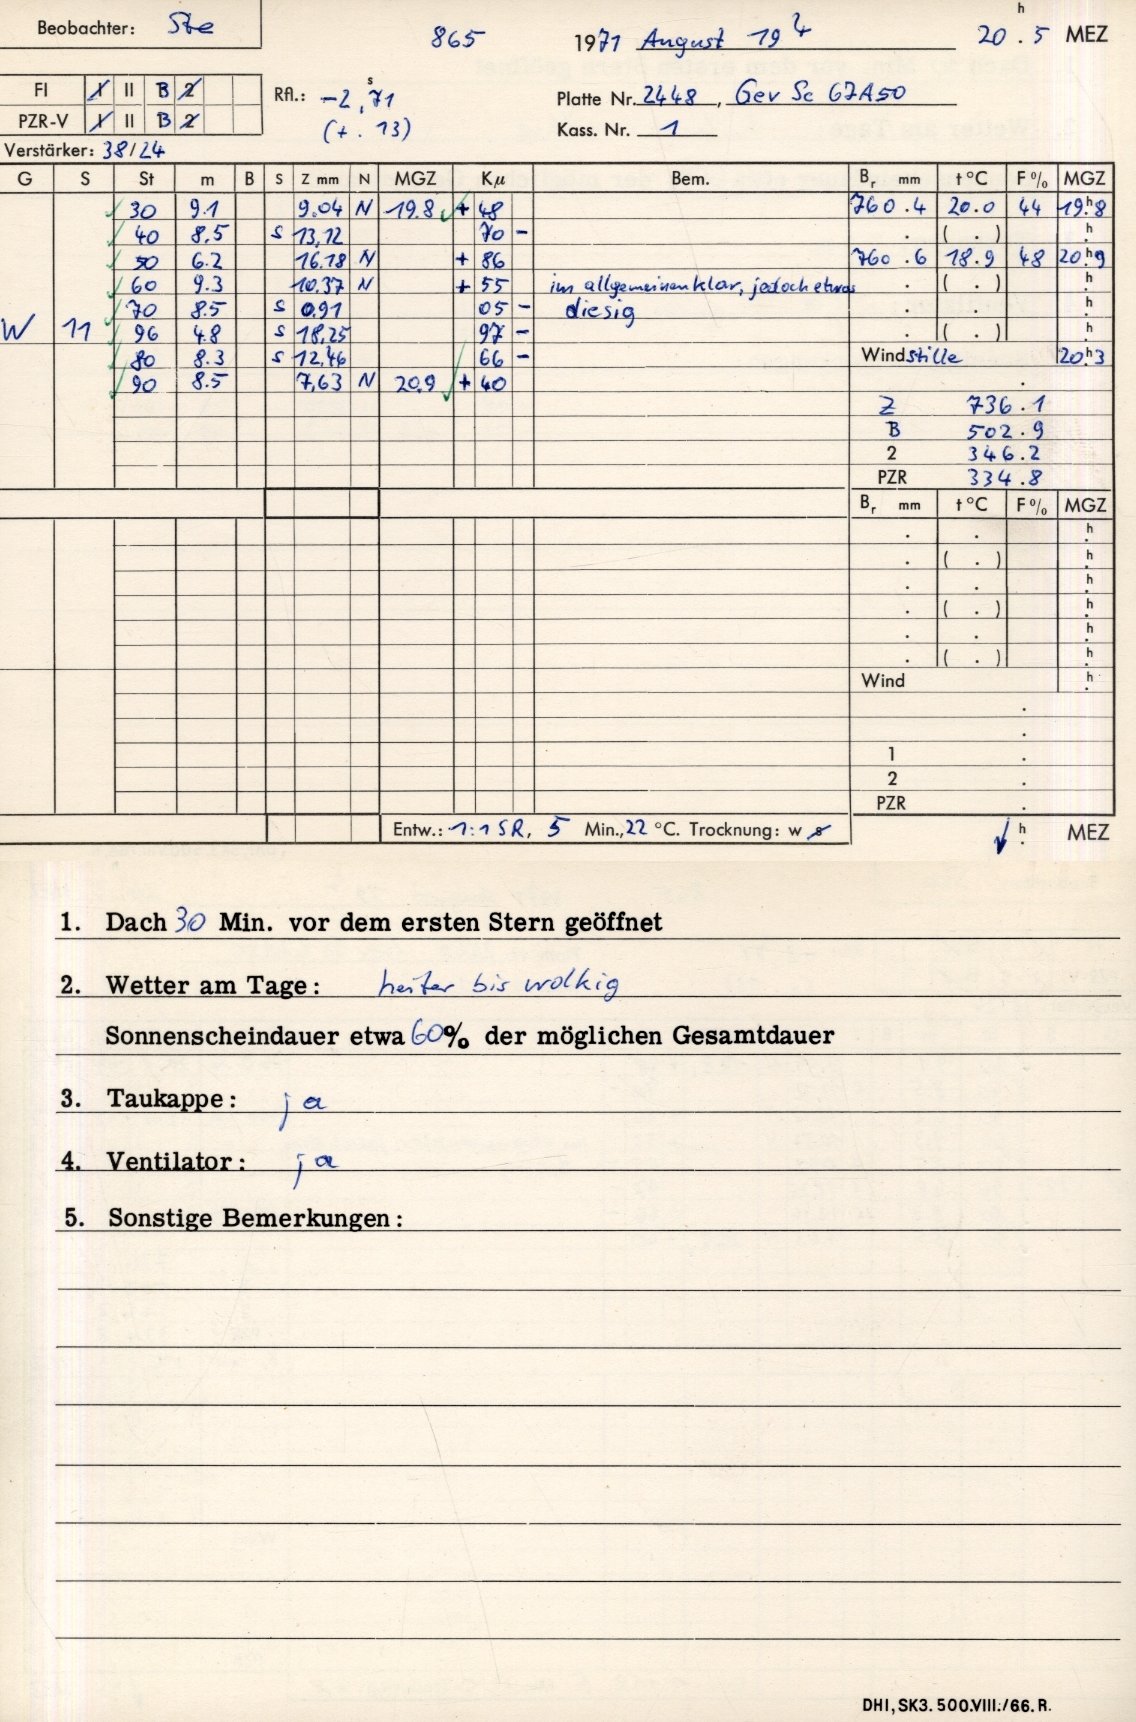 Beobachter: Ste
865 1971 August 19 20 h . 5 MEZ
FI I II B 2
PZR-V I II B 2
Rfl.: -2 s , 71
(+ . 13)
Platte Nr. 2448 , Gev Sc 67A50
Kass. Nr. 1
Verstärker: 38/24
G S St m B S Z mm N MGZ Kμ Bem. Br mm t °C F % MGZ
30 9.1 9.04 N 19.8 + 48 760 . 4 20.0 44 19 h . 8
40 8.5 S 13,12 70 - . ( . ) h .
50 6.2 16.18 N + 86 760 . 6 18.9 48 20 h . 9
60 9.3 10.37 N + 55 im allgemeinen klar, jedoch etwas . ( . ) h .
70 8.5 S 0.91 05 - diesig . . h .
W 11 96 4.8 S 18,25 97 - . ( . ) h .
80 8.3 S 12,46 66 - Windstille 20 h . 3
90 8.5 7,63 N 20.9 + 40 .
Z 736 . 1
B 502 . 9
2 346 . 2
PZR 334 . 8
Br mm t °C F % MGZ
. . h .
. ( . ) h .
. . h .
. ( . ) h .
. . h .
. ( . ) h .
Wind h .
.
.
1 .
2 .
PZR .
Entw.: 1:1 SR, 5 Min., 22 °C. Trocknung: w s h . MEZ
1. Dach 30 Min. vor dem ersten Stern geöffnet
2. Wetter am Tage: heiter bis wolkig
Sonnenscheindauer etwa 60% der möglichen Gesamtdauer
3. Taukappe: ja
4. Ventilator: ja
5. Sonstige Bemerkungen:
DHI, SK3. 500.VIII./66. R.